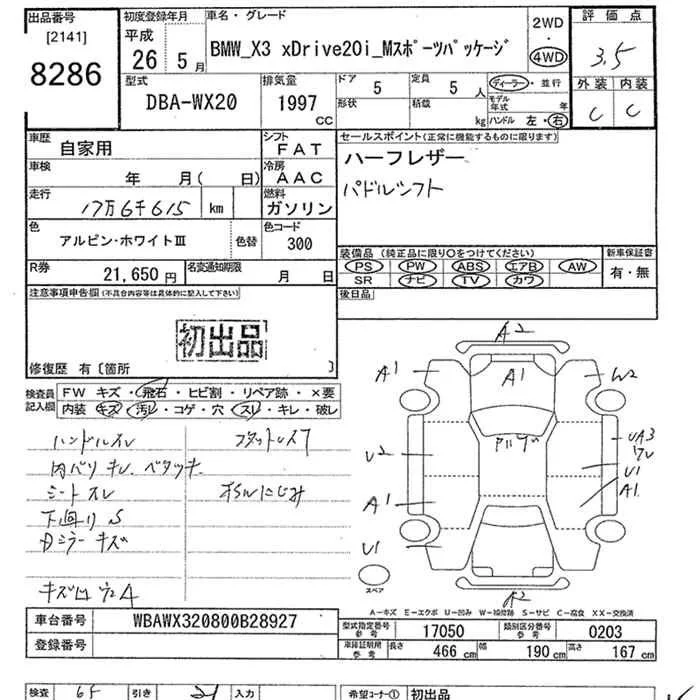 出品番号 初度登録年月 車名・グレード 2WD 評価点
[2141] 平成
8286 26 5月 BMW_X3 xDrive20i_Mスポーツパッケージ 4WD 3.5
型式 排気量 ドア 5 定員 5人 ディーラー・並行 外装 内装
DBA-WX20 1997 cc 形状 積載 kg モデル年式 年 C C
ハンドル 左・右
車歴 自家用 シフト FAT セールスポイント(正常に機能するものに限ります)
車検 年 月( 日) 冷房 AAC ハーフレザー
走行 17万6千615 km 燃料 ガソリン パドルシフト
色 アルピン・ホワイトIII 色替 色コード 300
装備品 (純正品に限り○をつけてください) 新車保証書
R券 21,650円 名変通知期限 月 日 PS PW ABS エアB AW 有・無
SR ナビ TV カワ
注意事項申告欄(不具合内容等は具体的に記入して下さい) 後日品
初出品
修復歴 有〔箇所 〕
検査員記入欄 FW キズ・飛石・ヒビ割・リペア跡・×要
内装 キズ・汚レ・コゲ・穴・スレ・キレ・破レ
ハンドルスレ
シートスレ
下回りS
Dミラーキズ
A2
A1 A1 W2
U2 UA3
U1
A1 A1
U1
スペア A2
A-キズ E-エクボ U-凹み W-補修跡 S-サビ C-腐食 XX-交換済
車台番号 WBAWX320800B28927
登録番号
型式指定番号 参考 17050 類別区分番号 参考 0203
車庫証明用 参考 長さ 466 cm 幅 190 cm 高さ 167 cm
検査 65 引き 21 入力 希望コーナー① 初出品